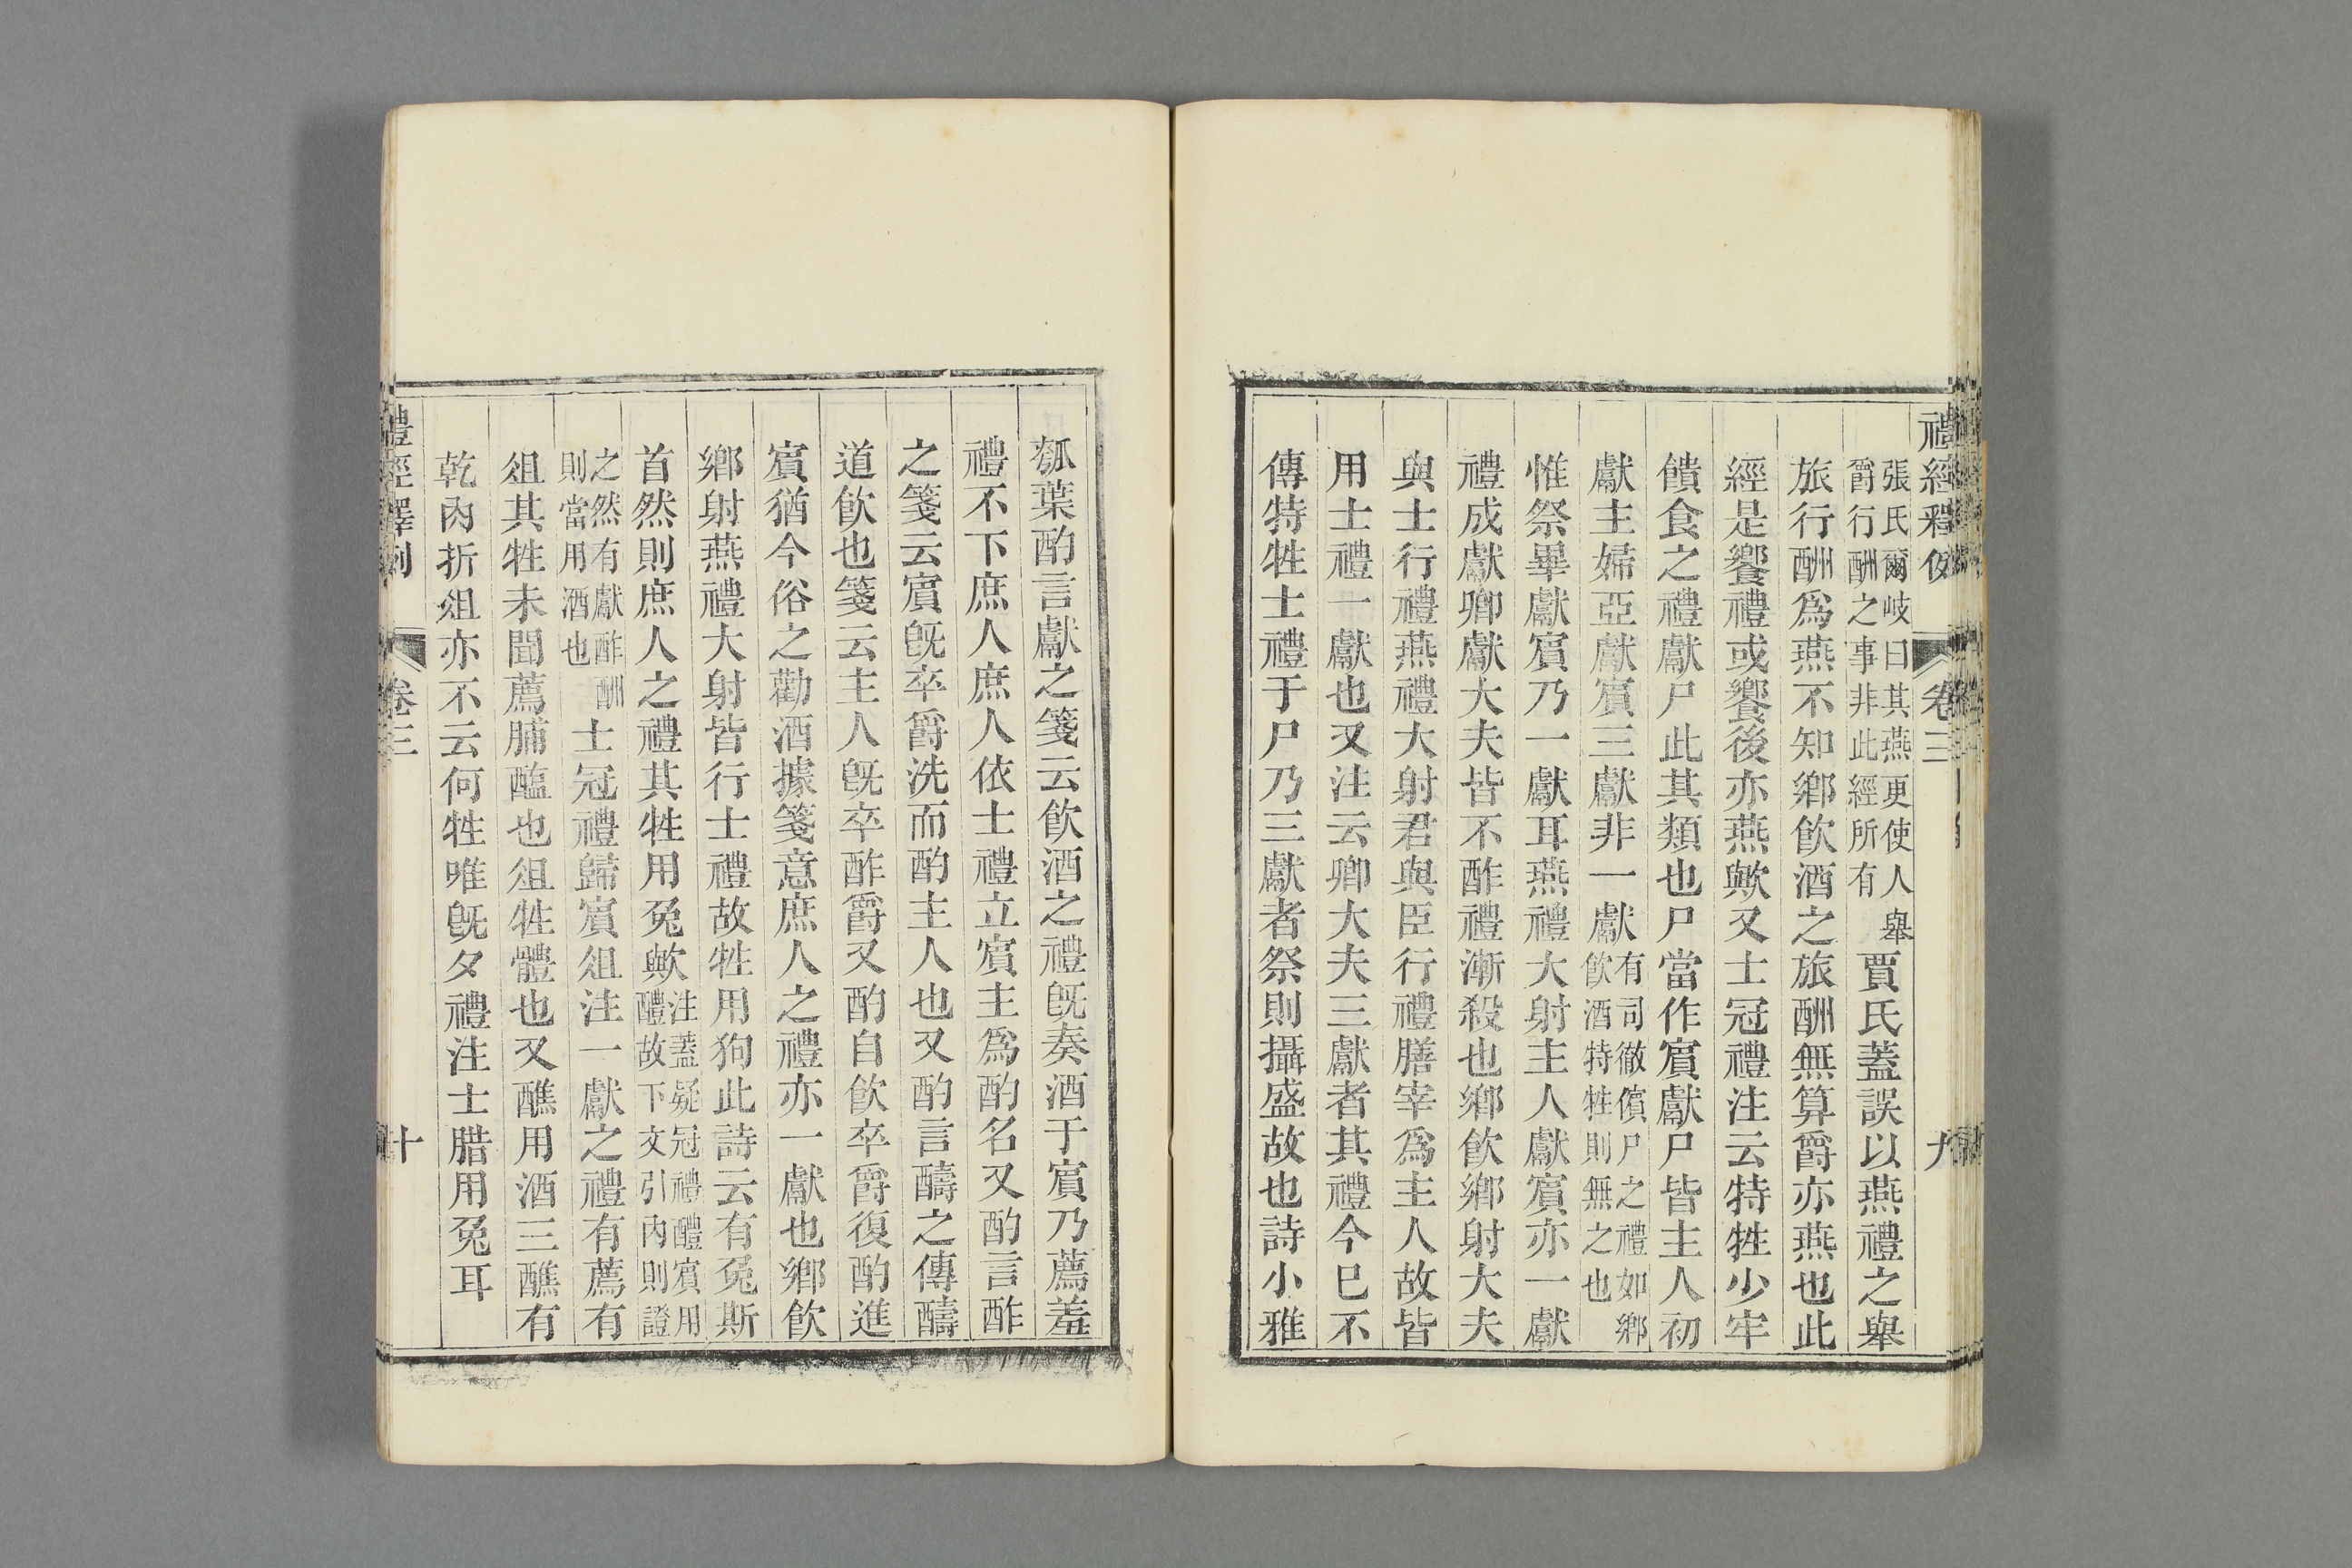 禮經釋例 卷三 九
張氏爾岐曰其燕更使人舉
爵行酬之事非此經所有
賈氏蓋誤以燕禮之舉
旅行酬爲燕不知鄉飲酒之旅酬無算爵亦燕也此
經是饗禮或饗後亦燕歟又士冠禮注云特牲少牢
饋食之禮獻尸此其類也尸當作賓獻尸皆主人初
獻主婦亞獻賓三獻非一獻
有司徹儐尸之禮如鄉
飲酒特牲則無之也
惟祭畢獻賓乃一獻耳燕禮大射主人獻賓亦一獻
禮成獻卿獻大夫皆不酢禮漸殺也鄉飲鄉射大夫
與士行禮燕禮大射君與臣行禮膳宰爲主人故皆
用士禮一獻也又注云卿大夫三獻者其禮今已不
傳特牲士禮于尸乃三獻者祭則攝盛故也詩小雅
瓠葉酌言獻之箋云飲酒之禮旣奏酒于賓乃薦羞
禮不下庶人庶人依士禮立賓主爲酌名又酌言酢
之箋云賓旣卒爵洗而酌主人也又酌言醻之傳醻
道飲也箋云主人旣卒酢爵又酌自飲卒爵復酌進
賓猶今俗之勸酒據箋意庶人之禮亦一獻也鄉飲
鄉射燕禮大射皆行士禮故牲用狗此詩云有兔斯
首然則庶人之禮其牲用兔歟
注蓋疑冠禮醴賓用
醴故下文引內則證
之然有獻酢酬
則當用酒也
士冠禮歸賓俎注一獻之禮有薦有
俎其牲未聞薦脯醢也俎牲體也又醮用酒三醮有
乾肉折俎亦不云何牲唯旣夕禮注士腊用兔耳
禮經釋例 卷三 十